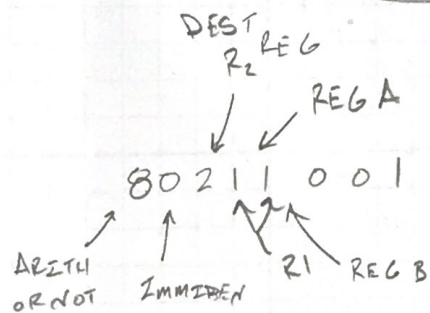 DEST REG
R2
REG A
80211001
ARITH
OR NOT
IMMIDEN
R1
REG B